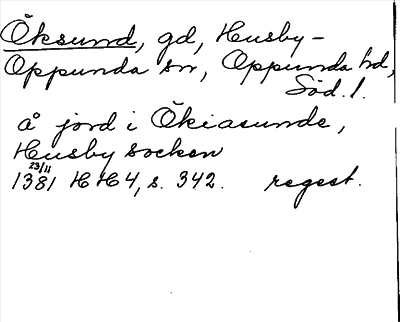 Öksund, gd, Husby-
Oppunda sn, Oppunda hd,
Söd. l.
å jord i Ökiasunde,
Husby socken
23/11
1381 HH4, s. 342. regest.